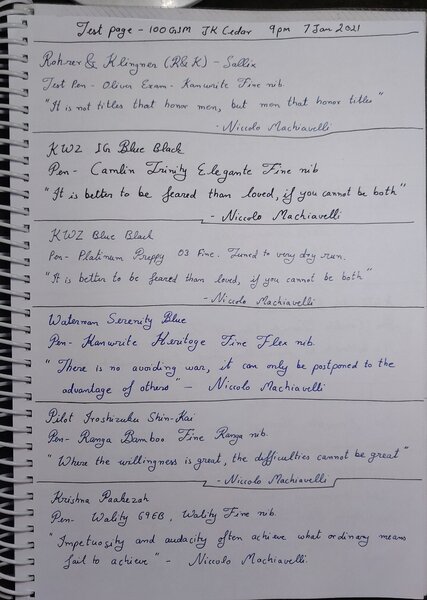 Test page - 100 GSM JK Cedar 9pm 7 Jan 2021
Rohrer & Klingner (R&K) - Salix
Test Pen - Oliver Exam - Kanwrite Fine nib.
"It is not titles that honor men, but men that honor titles"
- Niccolo Machiavelli
KWZ IG Blue Black
Pen - Camlin Trinity Elegante Fine nib
"It is better to be feared than loved, if you cannot be both"
- Niccolo Machiavelli
KWZ Blue Black
Pen - Platinum Preppy 03 Fine. Tuned to very dry run.
"It is better to be feared than loved, if you cannot be both"
- Niccolo Machiavelli
Waterman Serenity Blue
Pen - Kanwrite Heritage Fine Flex nib.
"There is no avoiding war, it can only be postponed to the
advantage of others" - Niccolo Machiavelli
Pilot Iroshizuku Shin-Kai
Pen - Ranga Bamboo Fine Ranga nib.
"Where the willingness is great, the difficulties cannot be great"
- Niccolo Machiavelli
Krishna Paakezah
Pen - Wality 69EB, Wality Fine nib.
"Impetuosity and audacity often achieve what ordinary means
fail to achieve" - Niccolo Machiavelli.